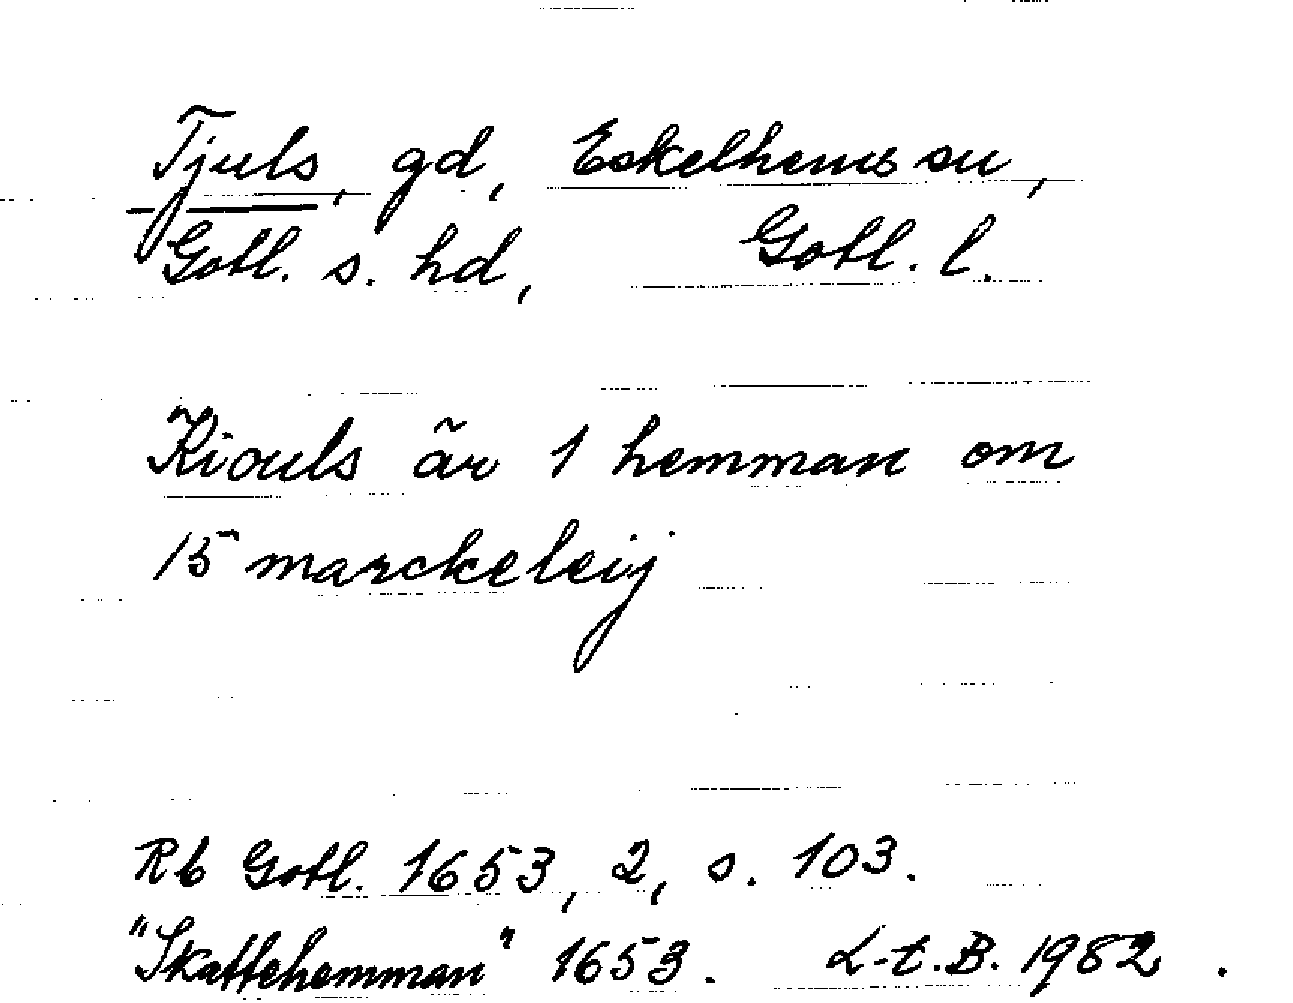 Tjuls, gd, Eskelhems sn,
Gotl. s. hd, Gotl. l.
Kiouls är 1 hemman om
15 marckeleij
Rb Gotl. 1653, 2, s. 103.
"Skattehemman" 1653. L-t.B. 1982.